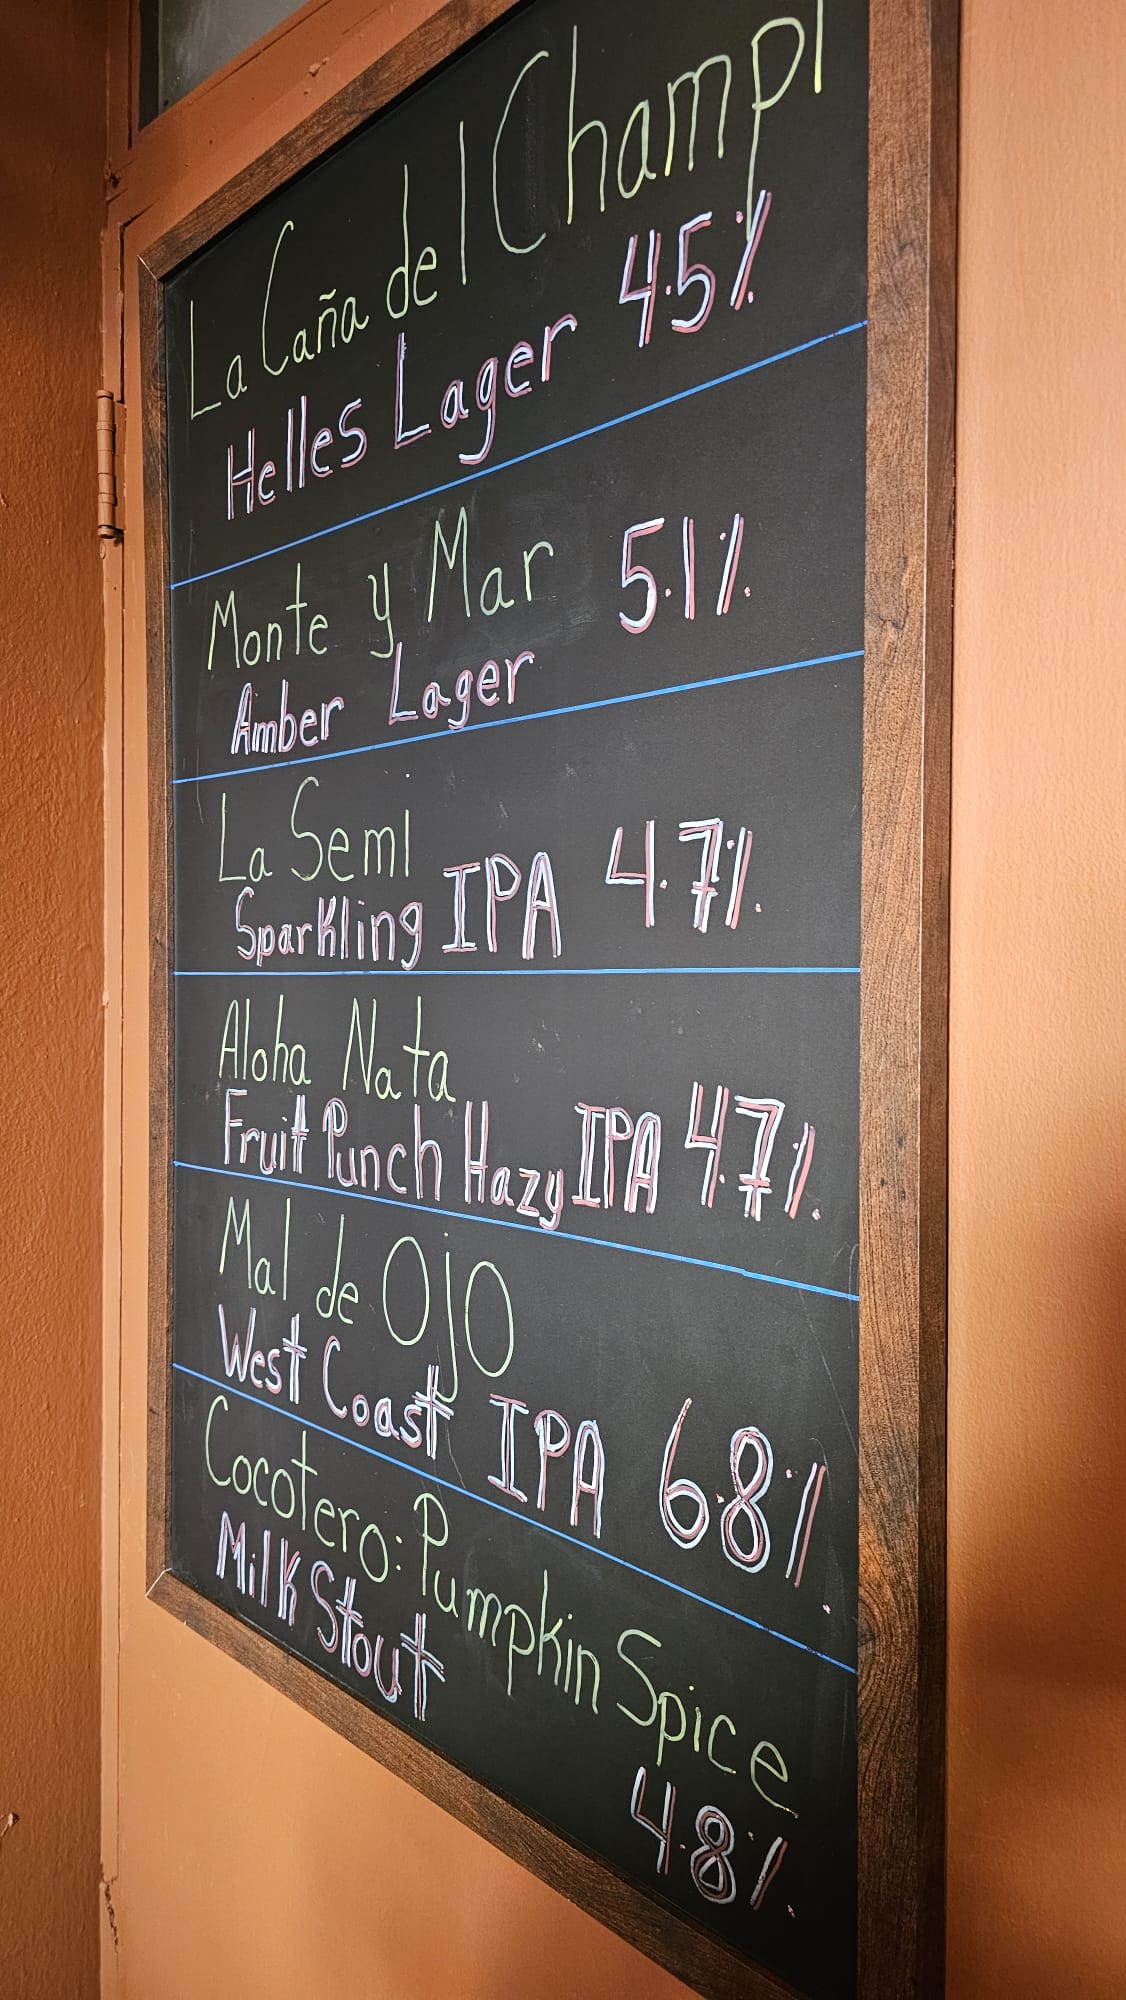 La Caña del Champi
Helles Lager 4.5%
Monte y Mar 5.1%
Amber Lager
La Semi
Sparkling IPA 4.7%
Aloha Nata
Fruit Punch Hazy IPA 4.7%
Mal de Ojo
West Coast IPA 6.8%
Cocotero: Pumpkin Spice
Milk Stout
4.8%